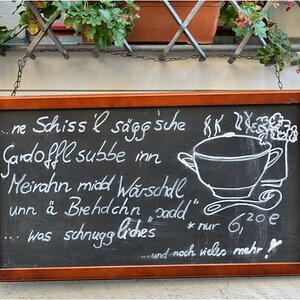 ...ne Schiss'l sägg'sche
Gardoffl subbe inn
Meirahn midd Wärschdl
unn ä Brehdchn "dadd"
... was schnuggliches" *nur 6,20€
...und noch vieles mehr!